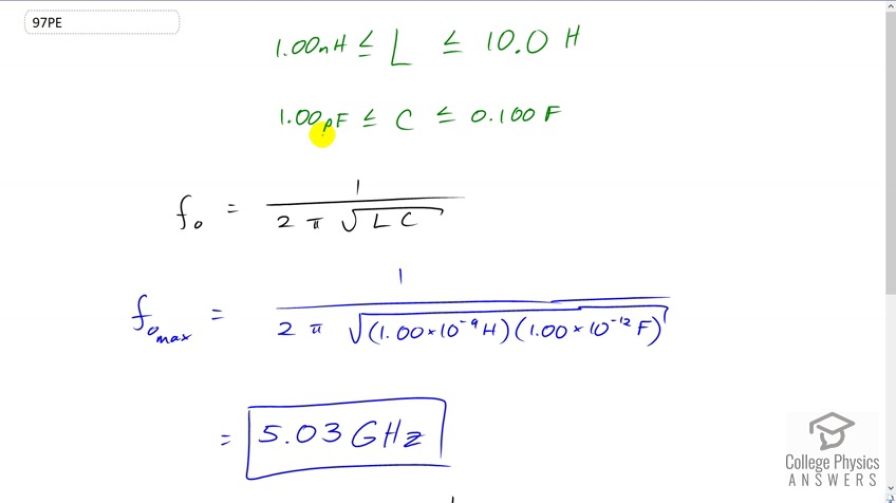 97PE
1.00nH ≤ L ≤ 10.0 H
1.00pF ≤ C ≤ 0.100 F
f₀ = 1 / (2 π √(L C))
f₀ₘₐₓ = 1 / (2 π √((1.00×10⁻⁹H)(1.00×10⁻¹²F)))
= 5.03 GHz
College Physics
ANSWERS